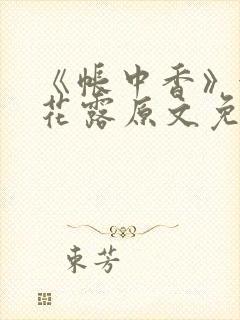 《帐中香》
花露原文免
束芳